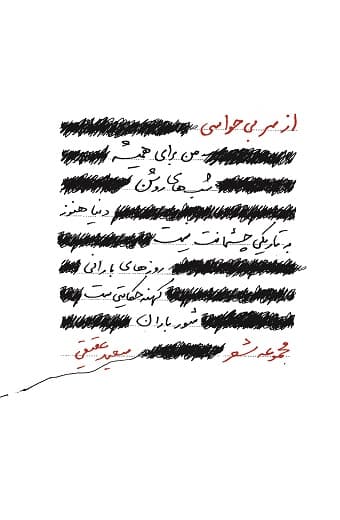 از سر بی حواسی
من برای همیشه
شب‌های روشن
دنیا هنوز
به تاریکی چشمات نیست
روزهای بارانی
کهنه حکایتی ست
شور باران
مجموعه شعر سعید عقیقی